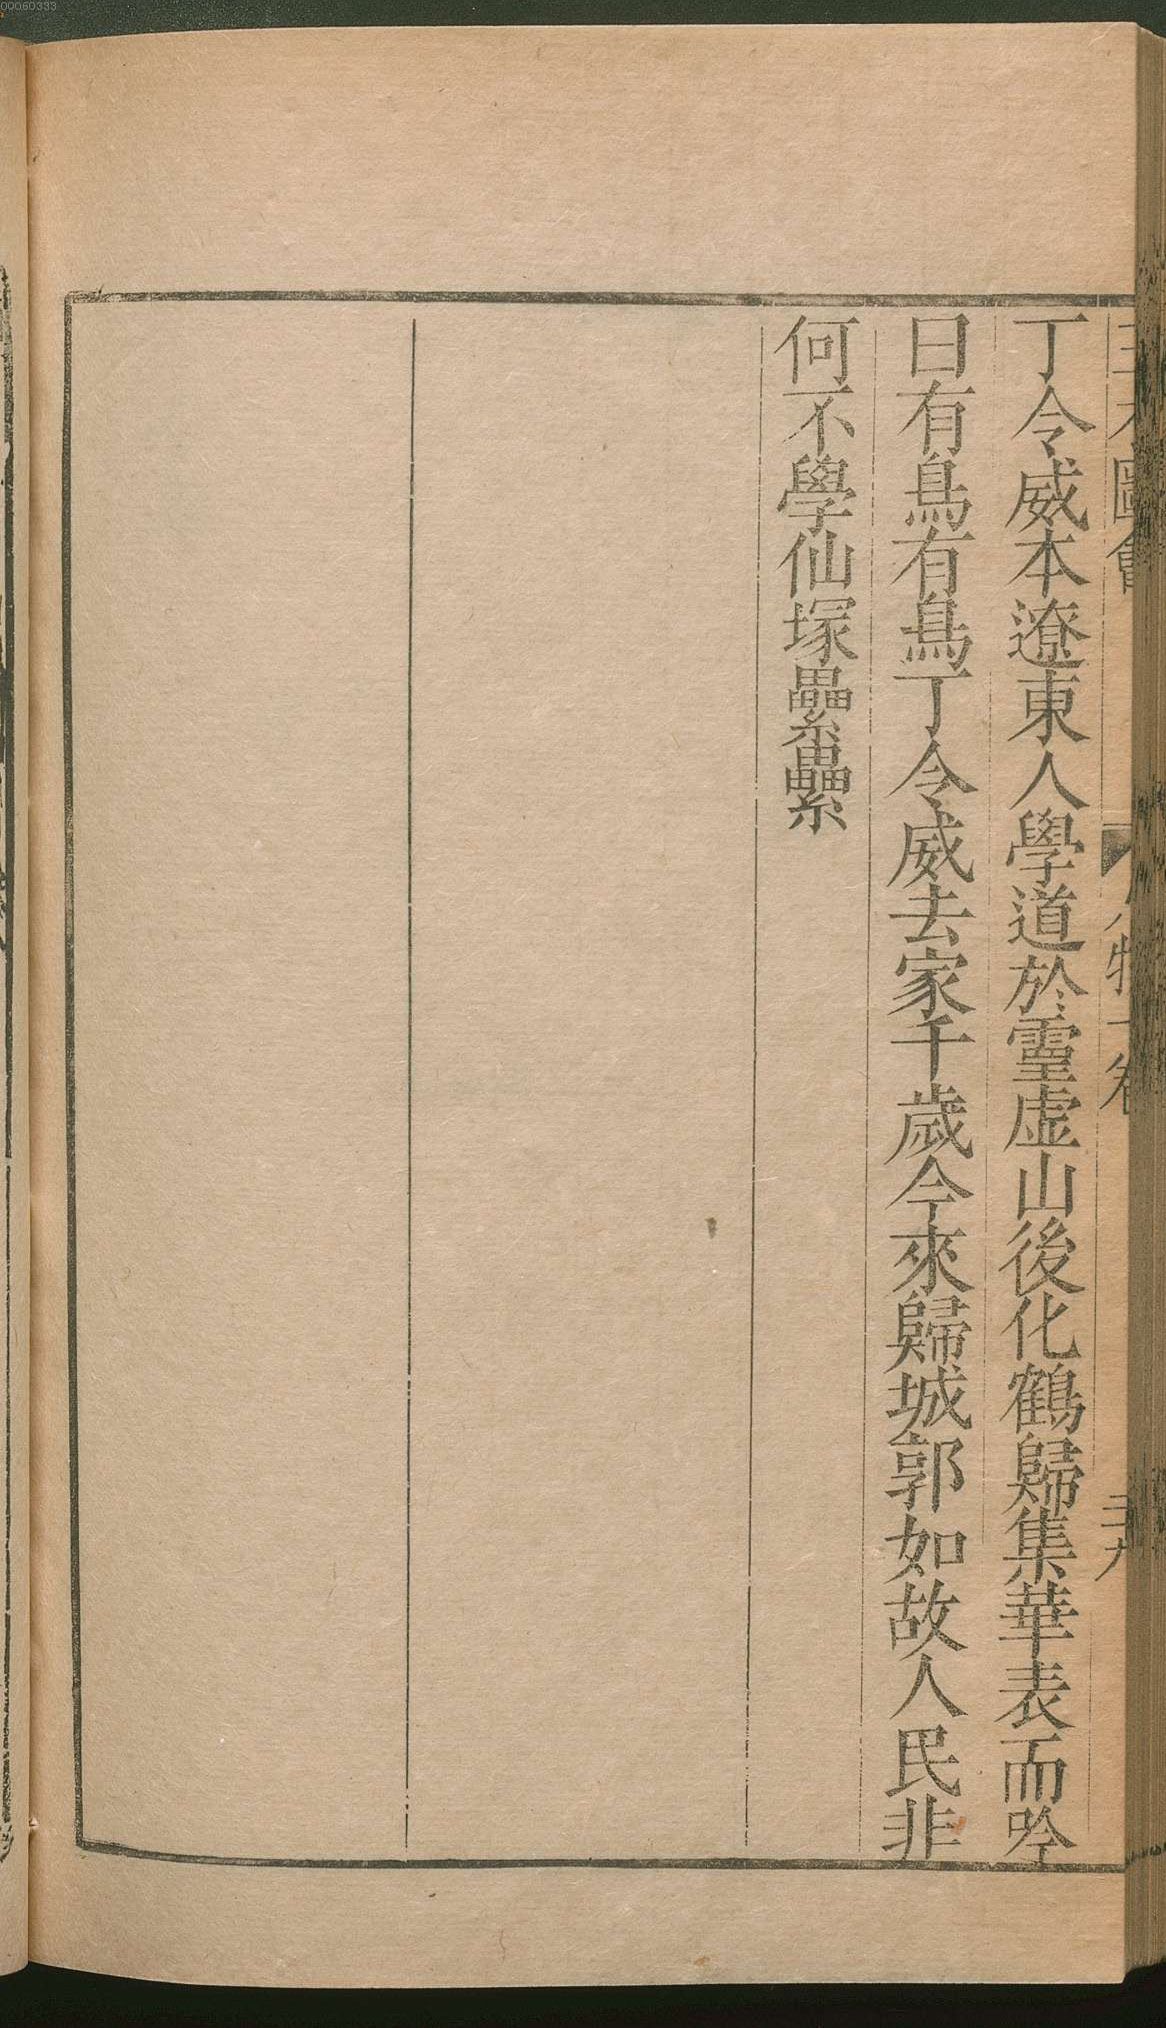 00060333
三才圖會 人物十卷 三九
丁令威本遼東人學道於靈虛山後化鶴歸集華表而吟
曰有鳥有鳥丁令威去家千歲今來歸城郭如故人民非
何不學仙塚纍纍